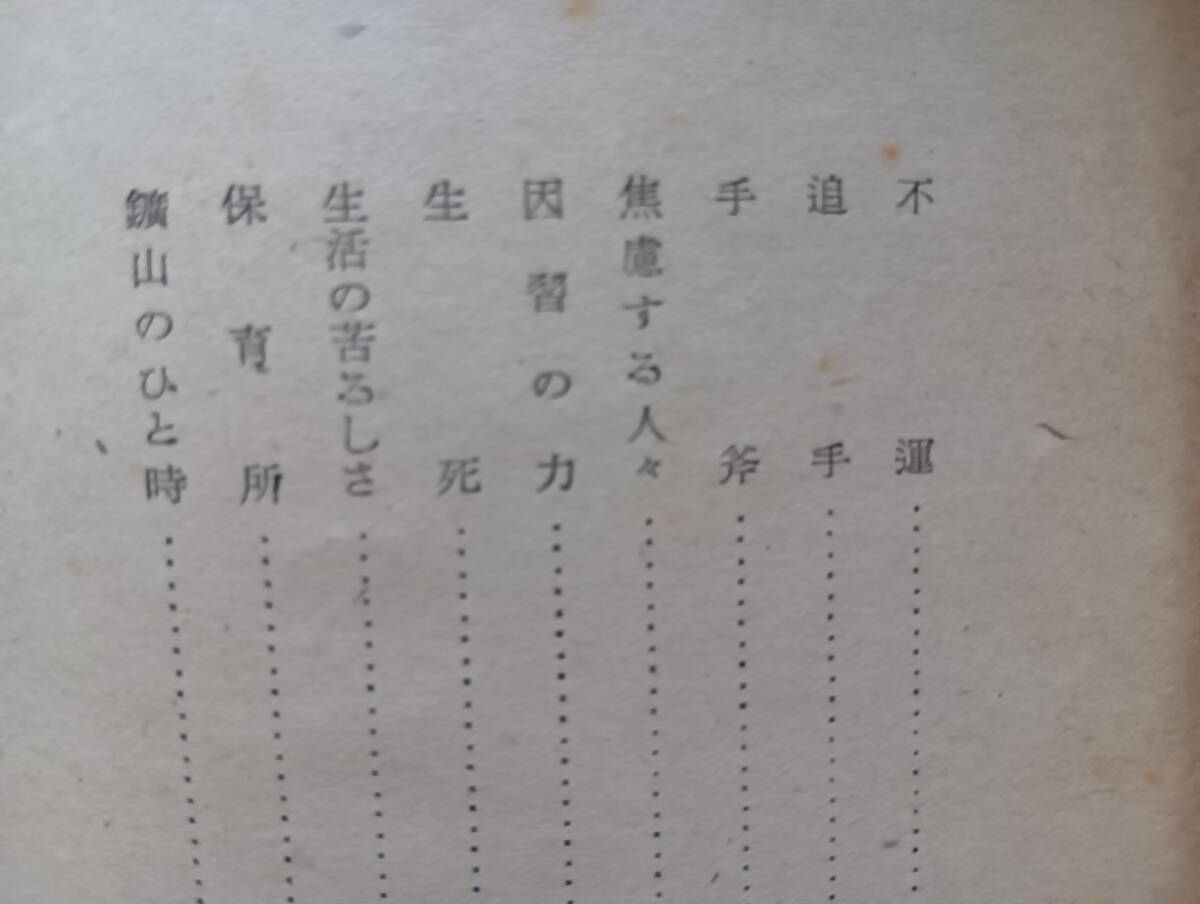 不運
追手
手斧
焦慮する人々
因習の力
生死
生活の苦るしさ
保育所
鑛山のひと時